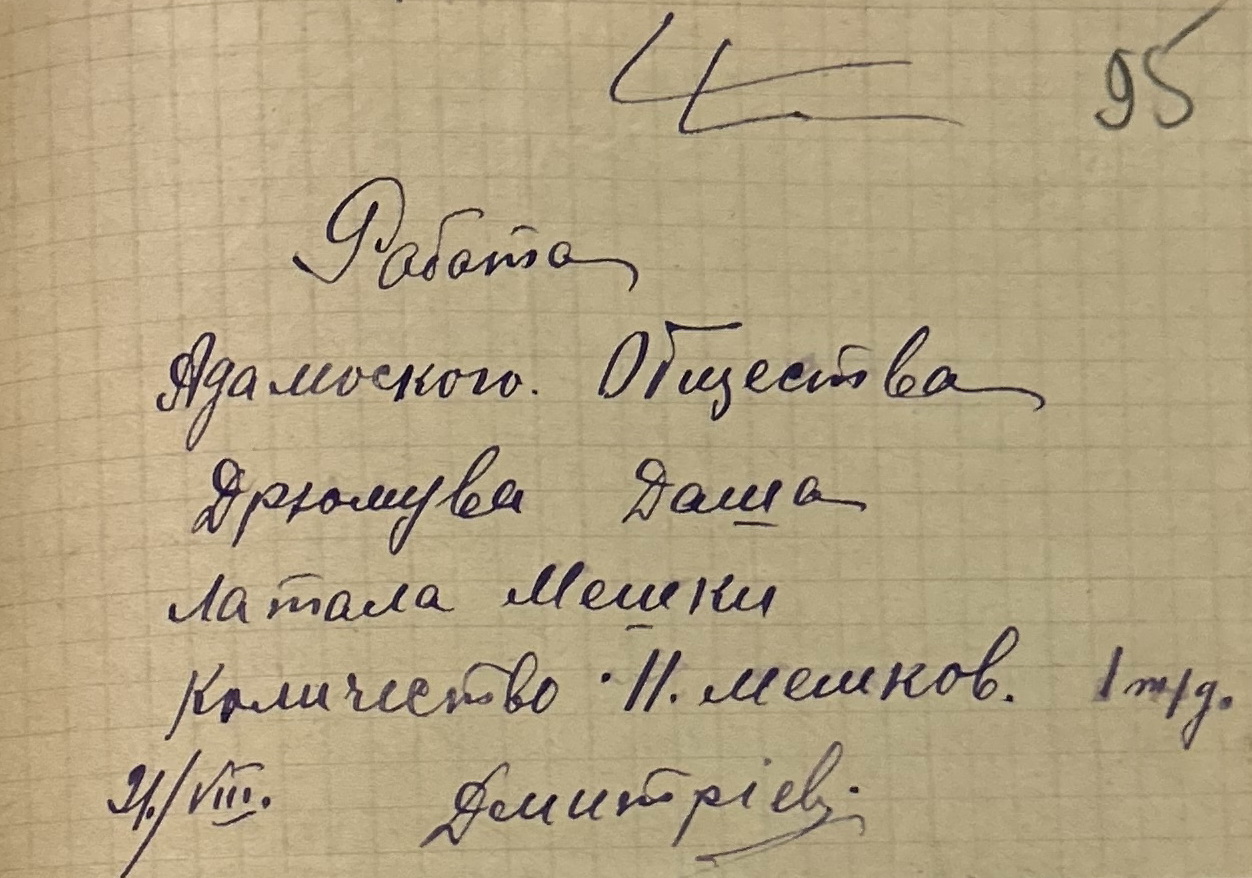 95
Работа
Адамоского. Общества
Дрюмува Даша
Латала Мешки
Количество 11. мешков. 1 т/д.
21/VIII.
Дмитріев